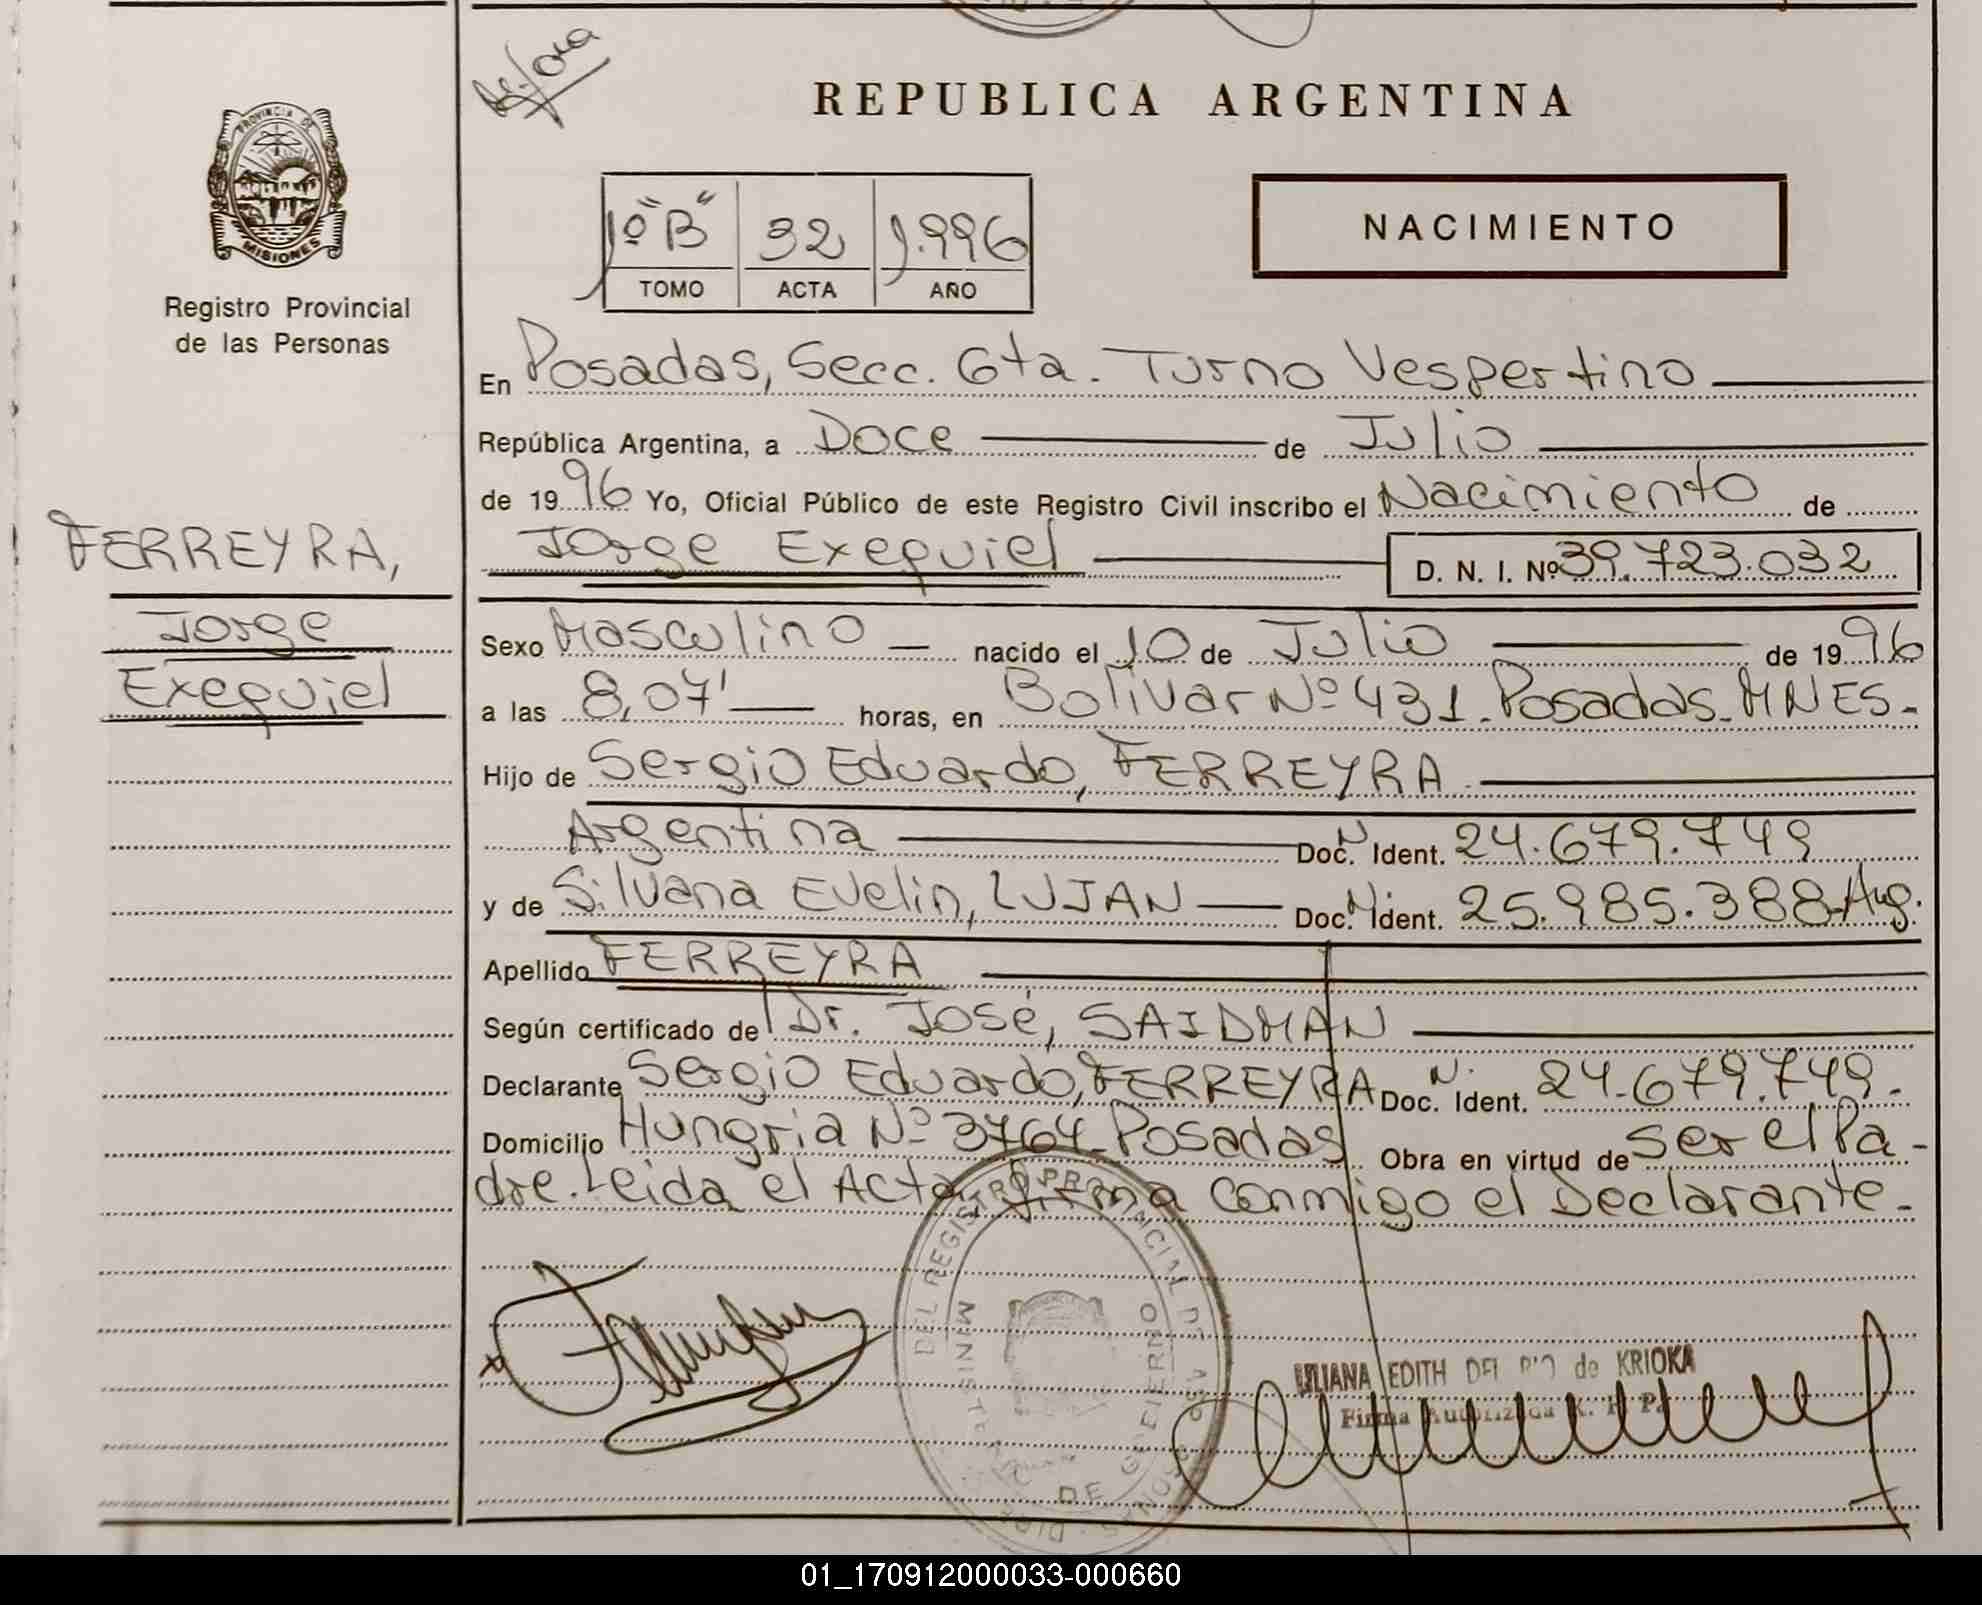 REPUBLICA ARGENTINA
PROVINCIA DE
MISIONES
Registro Provincial
de las Personas
1º "B" 32 1.996
TOMO ACTA AÑO
NACIMIENTO
En Posadas, Secc. 6ta. Turno Vespertino
República Argentina, a Doce de Julio
de 19 96 Yo, Oficial Público de este Registro Civil inscribo el Nacimiento de
Jorge Exequiel D. N. I. Nº 39.723.032
FERREYRA,
Jorge
Exequiel
Sexo Masculino nacido el 10 de Julio de 19 96
a las 8,07' horas, en Bolivar Nº 431. Posadas. MNES.
Hijo de Sergio Eduardo, FERREYRA
Argentina Doc. N. Ident. 24.679.749
y de Silvana Evelin, LUJAN Doc. N. Ident. 25.985.388 Arg.
Apellido FERREYRA
Según certificado de Dr. José, SAIDMAN
Declarante Sergio Eduardo, FERREYRA Doc. N. Ident. 24.679.749.
Domicilio Hungria Nº 3764 Posadas Obra en virtud de ser el Pa-
dre. Leida el Acta firma conmigo el Declarante.
DEL REGISTRO PROVINCIAL DE
MINISTERIO DE GOBIERNO
LILIANA EDITH DEL RIO de KRIOKA
Firma Autorizada
01_170912000033-000660